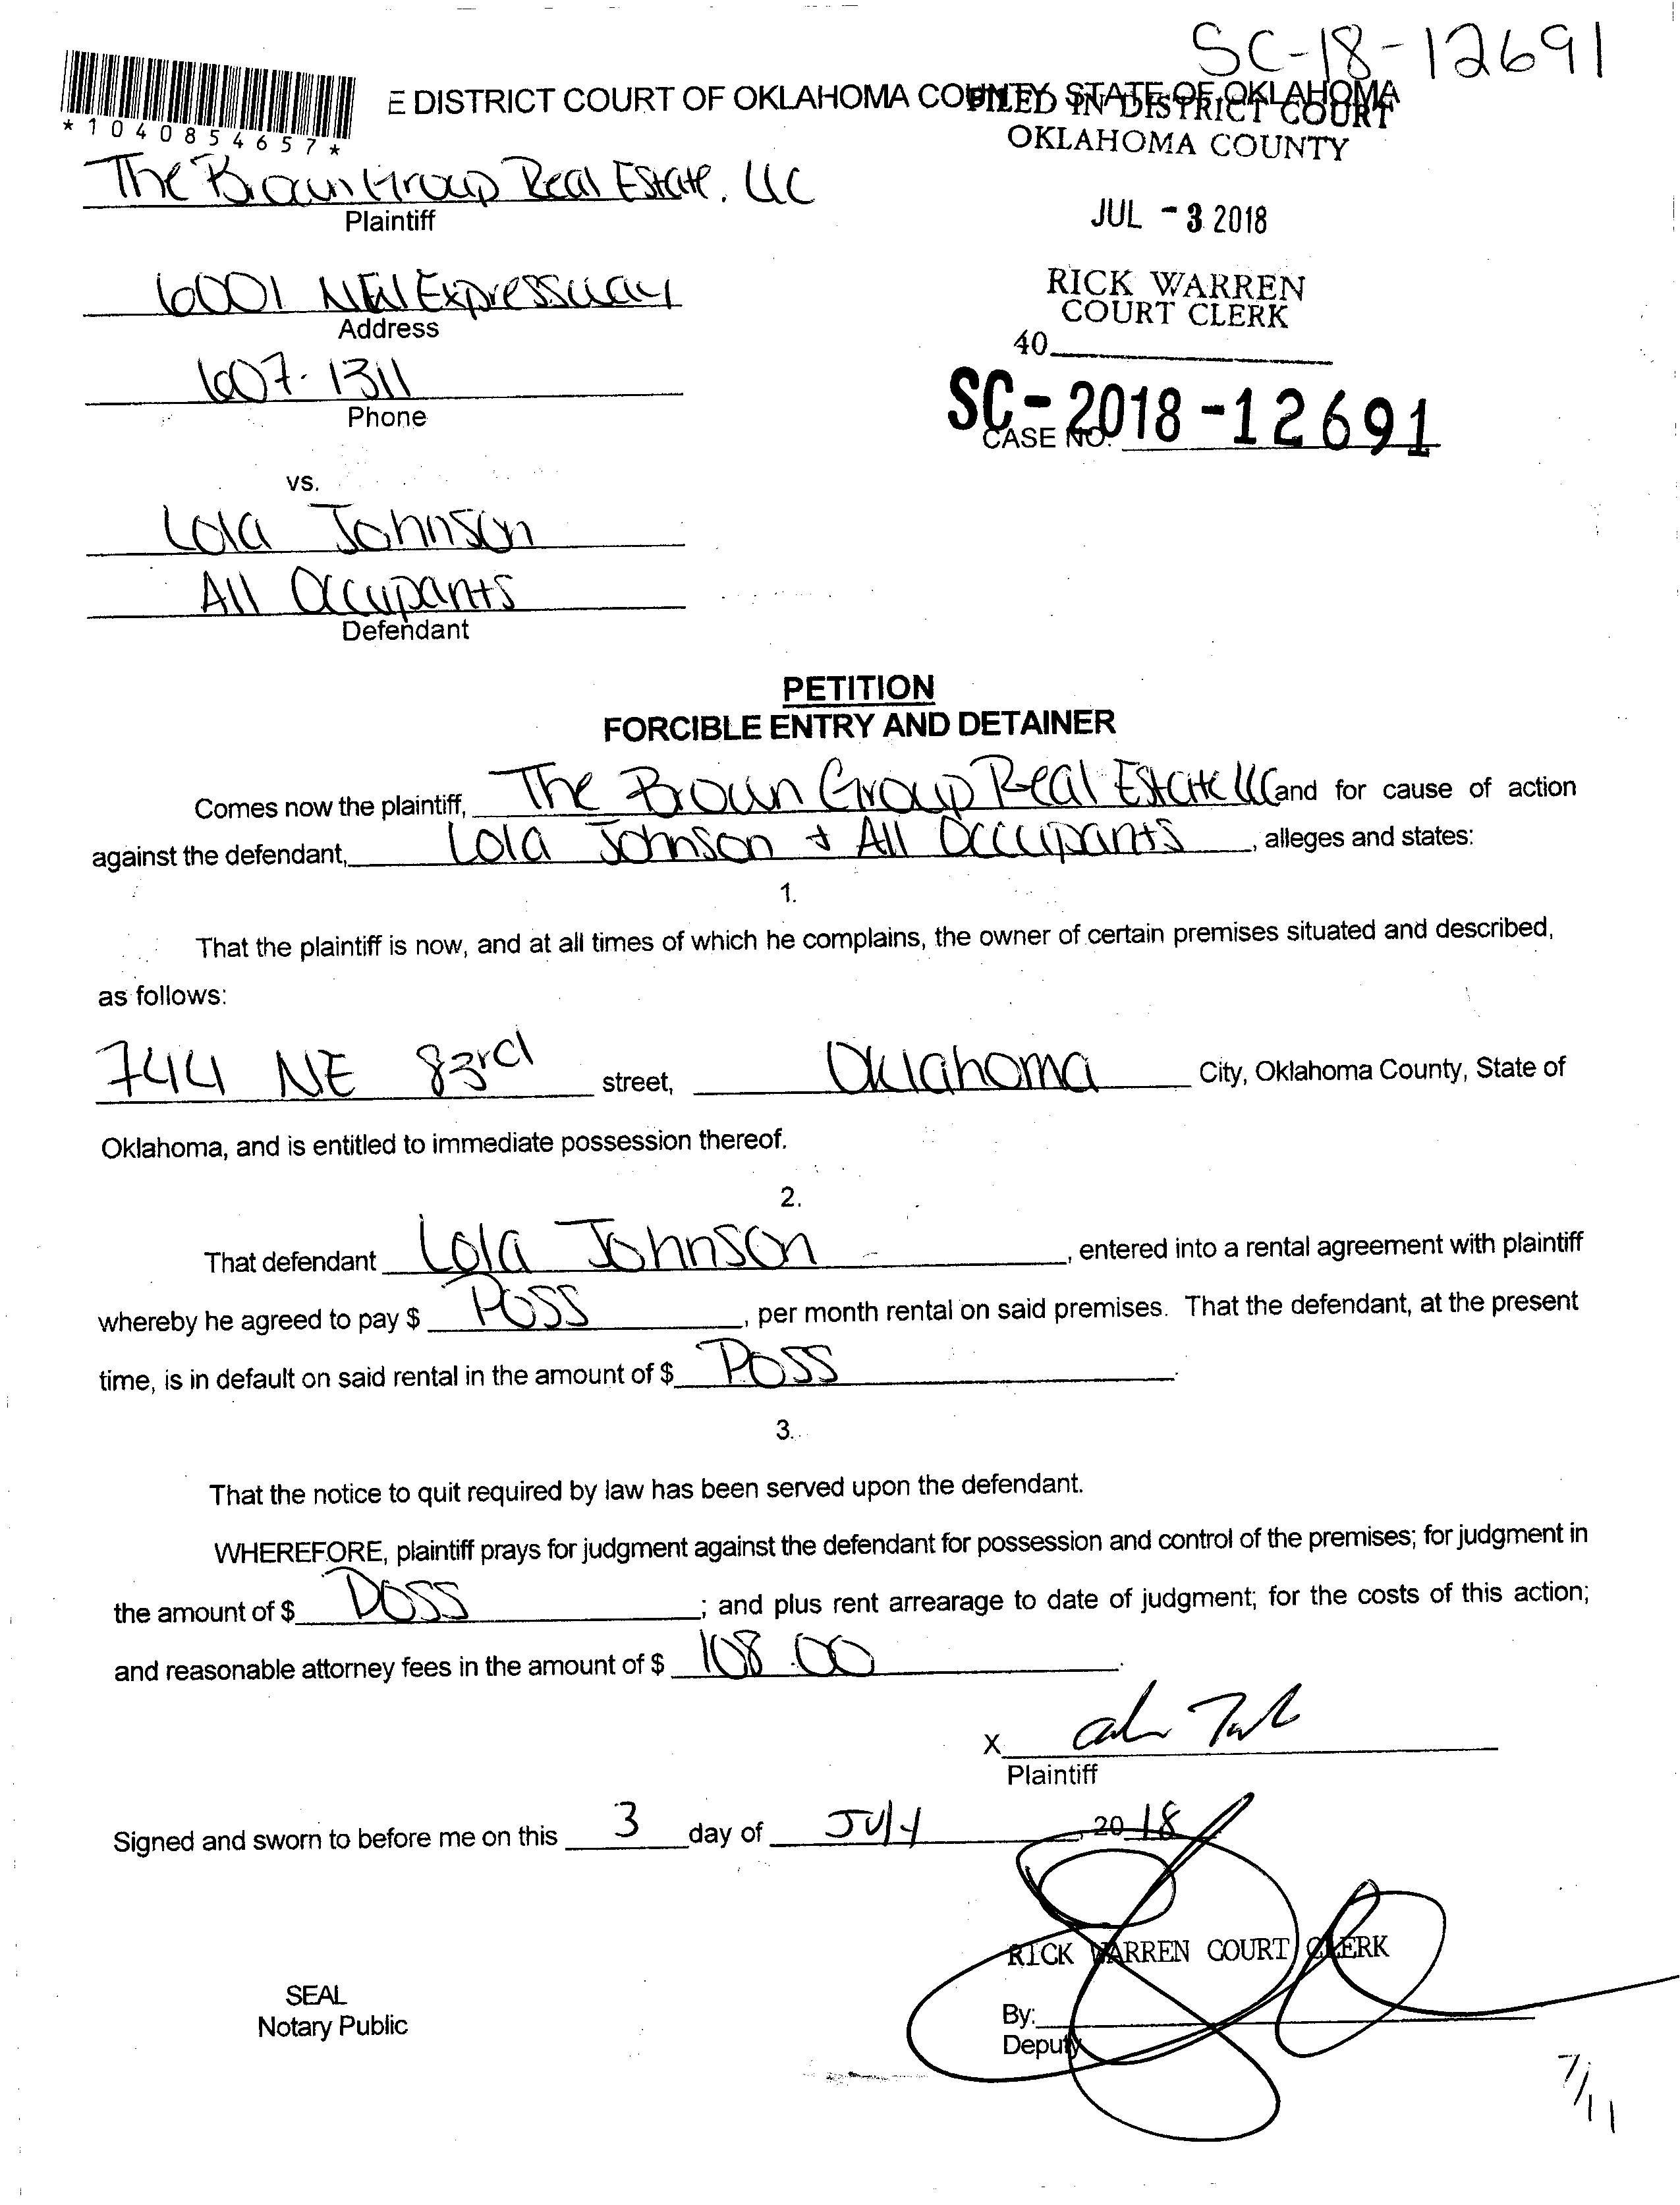 SC-18-12691
E DISTRICT COURT OF OKLAHOMA COUNTY, STATE OF OKLAHOMA
FILED IN DISTRICT COURT
OKLAHOMA COUNTY
*1040854657*
The Brown Group Real Estate, LLC
Plaintiff
JUL - 3 2018
6001 NW Expressway
Address
RICK WARREN
COURT CLERK
40
607-1311
Phone
SC-2018-12691
CASE NO.
vs.
Lola Johnson
All Occupants
Defendant
PETITION
FORCIBLE ENTRY AND DETAINER
Comes now the plaintiff, The Brown Group Real Estate LLC and for cause of action
against the defendant, Lola Johnson + All Occupants, alleges and states:
1.
That the plaintiff is now, and at all times of which he complains, the owner of certain premises situated and described,
as follows:
744 NE 83rd street, Oklahoma City, Oklahoma County, State of
Oklahoma, and is entitled to immediate possession thereof.
2.
That defendant Lola Johnson, entered into a rental agreement with plaintiff
whereby he agreed to pay $ Poss, per month rental on said premises. That the defendant, at the present
time, is in default on said rental in the amount of $ Poss.
3.
That the notice to quit required by law has been served upon the defendant.
WHEREFORE, plaintiff prays for judgment against the defendant for possession and control of the premises; for judgment in
the amount of $ Poss; and plus rent arrearage to date of judgment; for the costs of this action;
and reasonable attorney fees in the amount of $ 108.00.
X
Plaintiff
Signed and sworn to before me on this 3 day of July, 2018
RICK WARREN COURT CLERK
SEAL
Notary Public
By:
Deputy
7/11